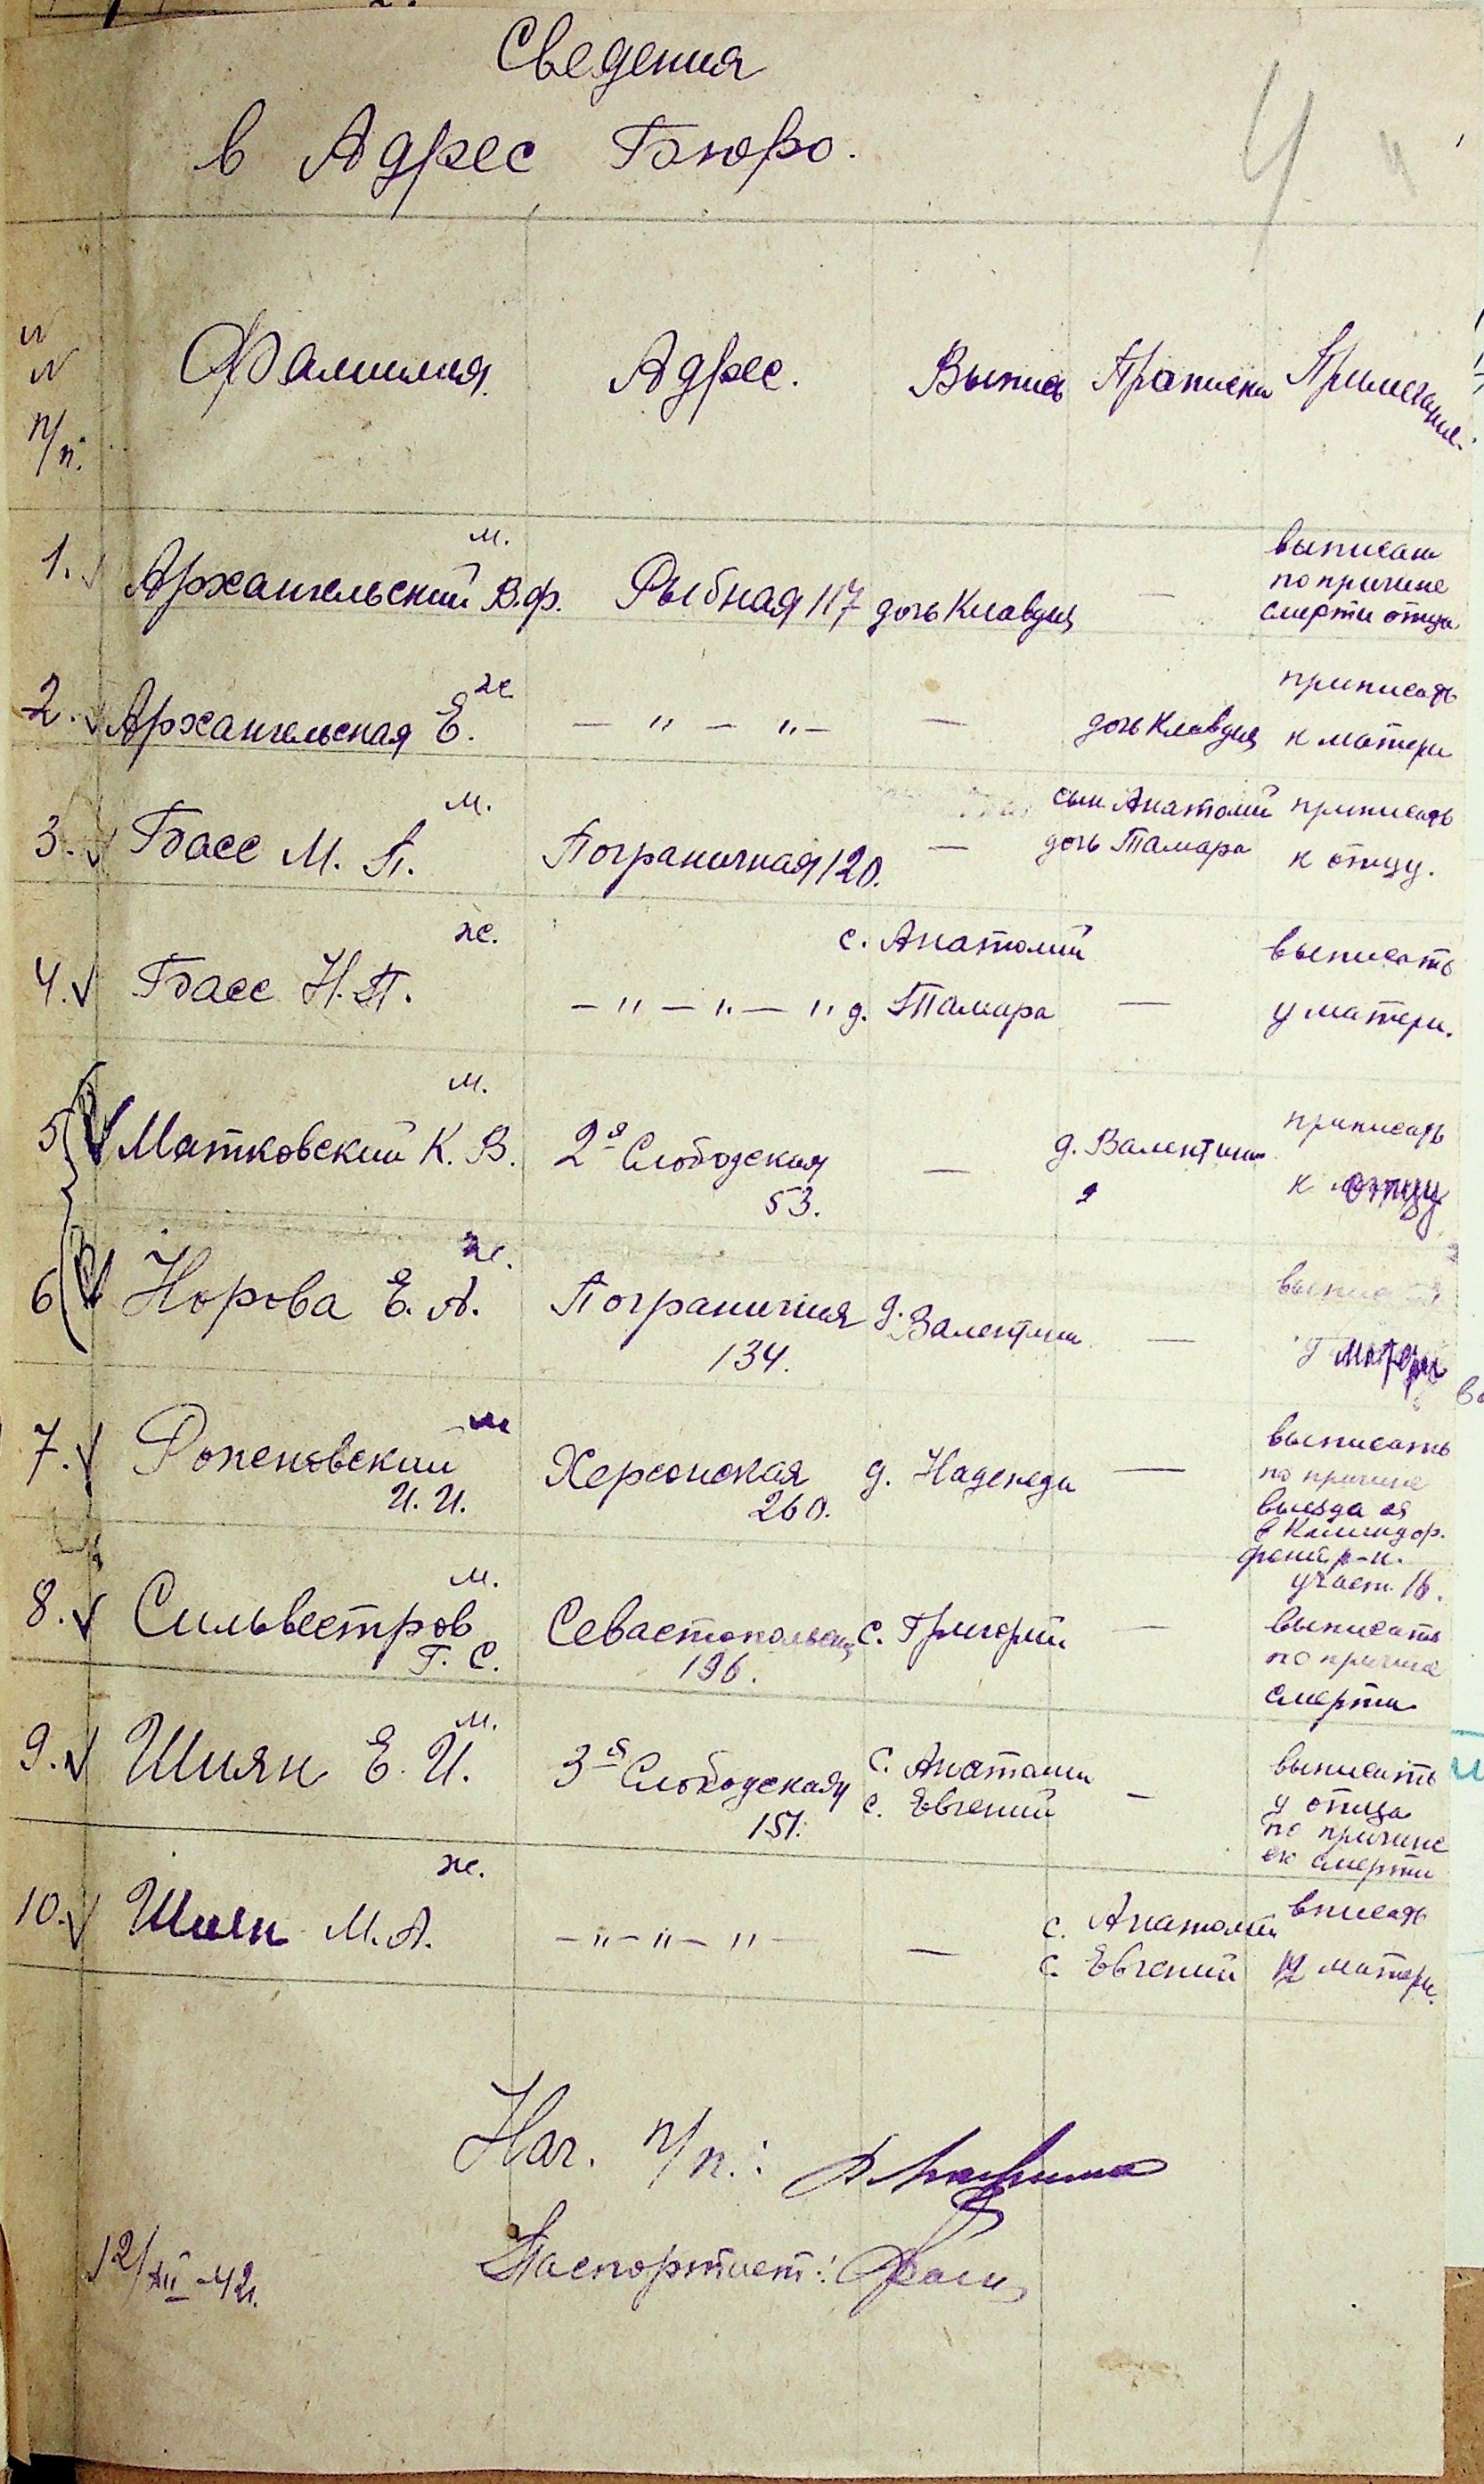 Сведения
в Адрес Бюро.
4
N
N
п/п.
Фамилия.
Адрес.
Выпись
Прописка
Примечания.
1. Архангельский В.Ф. м. Рыбная 117 дочь Клавдия — выписан
по причине
смерти отца
2. Архангельская Е. ж. — " — " — — дочь Клавдия приписать
к матери
3. Басс М. П. м. Пограничная 120. — сын Анатолий приписать
дочь Тамара к отцу.
4. Басс Н. П. ж. — " — " — " с. Анатолий — выписать
д. Тамара у матери.
5 Матковский К. В. м. 2я Слободская — д. Валентина приписать
53. к отцу
6 Норова Е. А. ж. Погранична д. Валентина —
134. матери
7. Роженовский м Херсонская д. Надежда — выписать
И. И. 260. по причине
выезда ея
в Калиндор.
участ. 16.
8. Сильвестров м. Севастопольск с. Григорий — выписать
Г. С. 196. по причине
смерти
9. Шиян Е. И. м. 3я Слободская с. Анатолий — выписать
151. с. Евгений у отца
по причине
ек смерти
10. Шиян М. А. ж. — " — " — " — — с. Анатолий вписать
с. Евгений к матери.
Нач. п/п.:
Паспортист:
12/XII-42г.